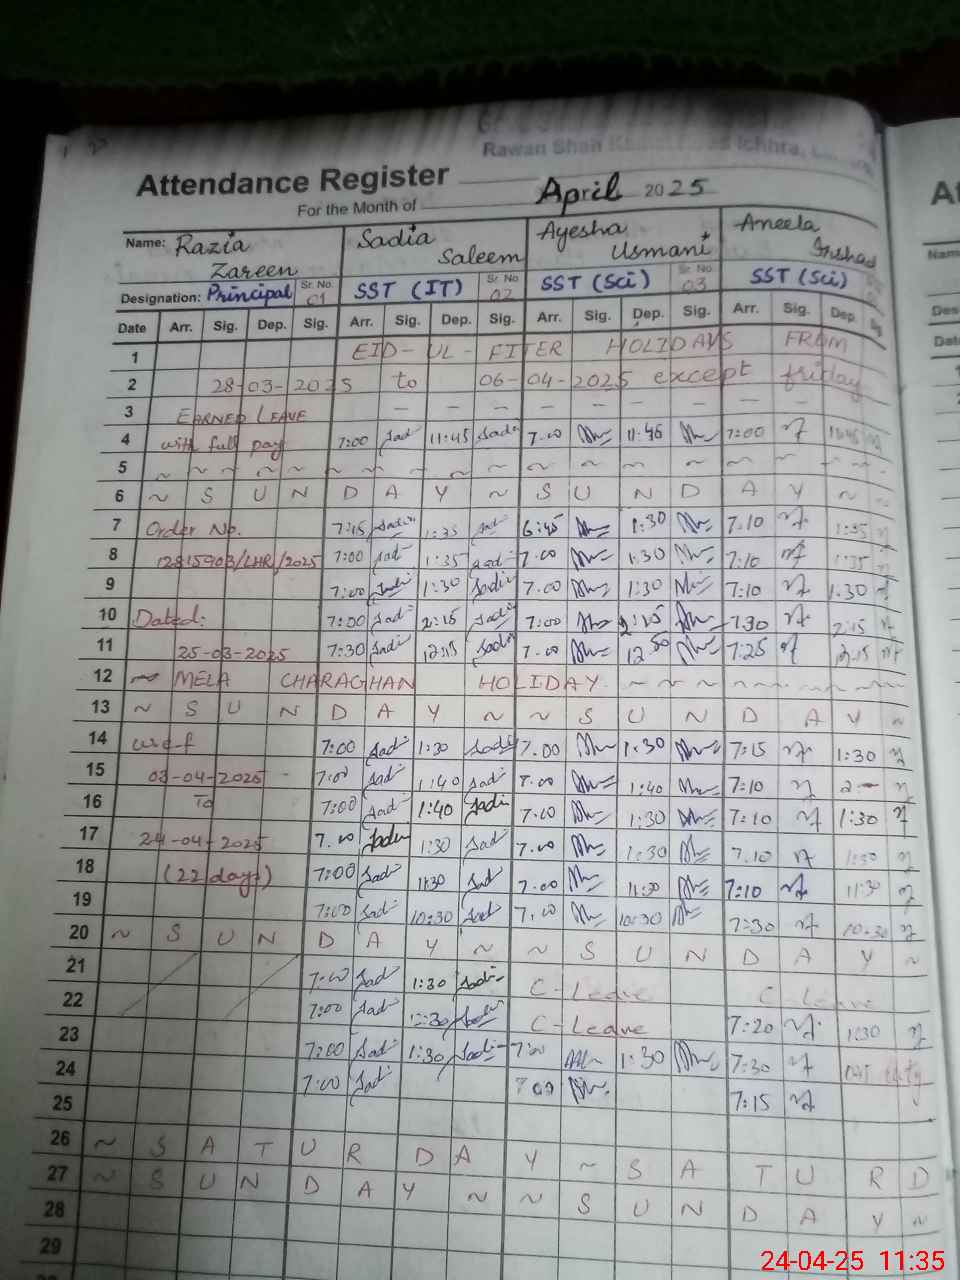 Rawan Shah Road Ichhra,
Attendance Register
For the Month of April 2025
Name: Razia Zareen Sadia Saleem Ayesha Usmani Aneela Irshad
Designation: Principal Sr. No. 01 SST (IT) Sr. No. 02 SST (Sci) Sr. No. 03 SST (Sci)
Date Arr. Sig. Dep. Sig. Arr. Sig. Dep. Sig. Arr. Sig. Dep. Sig. Arr. Sig. Dep. Sig
1 EID-UL-FITER HOLIDAYS FROM
2 28-03-2025 to 06-04-2025 except friday
3 EARNED LEAVE — — — — — — — — — —
4 with full pay 7:00 Sadi 11:45 Sadi 7.00 11:45 7:00 11:45
5 ~ ~ ~ ~ ~ ~ ~ ~ ~ ~ ~ ~ ~ ~
6 ~ S U N D A Y ~ S U N D A Y ~
7 Order No. 7:15 Sadi 1:35 Sadi 6:45 1:30 7:10 1:35
8 12815903/LHR/2025 7:00 Sadi 1:35 Sadi 7.00 1:30 7:10 1:35
9 7:00 Sadi 1:30 Sadi 7.00 1:30 7:10 1.30
10 Dated: 7:00 Sadi 2:15 Sadi 7:00 2:15 730 2:15
11 25-03-2025 7:30 Sadi 12:15 Sadi 7.00 12 50 7:25 12.15
12 ~ MELA CHARAGHAN HOLIDAY ~ ~ ~ ~ ~ ~ ~
13 ~ S U N D A Y ~ ~ S U N D A Y ~
14 w.e.f 7:00 Sadi 1:30 Sadi 7.00 1.30 7:15 1:30
15 03-04-2025 7:00 Sadi 1:40 Sadi 7.00 1:40 7:10 2-
16 To 7:00 Sadi 1:40 Sadi 7.00 1:30 7:10 1:30
17 24-04-2025 7.00 Sadi 1:30 Sad 7.00 1:30 7.10 1:30
18 (22 days) 7:00 Sad 11:30 Sad 7.00 11:30 7:10 11:30
19 7:00 Sad 10:30 Sad 7.00 10:30 7:30 10:30
20 ~ S U N D A Y ~ ~ S U N D A Y ~
21 7:00 Sad 1:30 Sadi C-Leave C-Leave
22 7:00 Sad Sadi C-Leave 7:20 1:30
23 7:00 Sad 1:30 Sadi 7:00 1:30 7:30 duty
24 7:00 Sad 7:00 7:15
25
26 ~ S A T U R D A Y ~ S A T U R D
27 ~ S U N D A Y ~ ~ S U N D A Y ~
28
29
At
Name
Des
Date
24-04-25 11:35